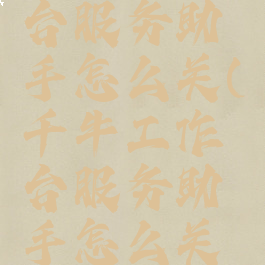 台服务助
手怎么关(
千牛工作
台服务助
手怎么关